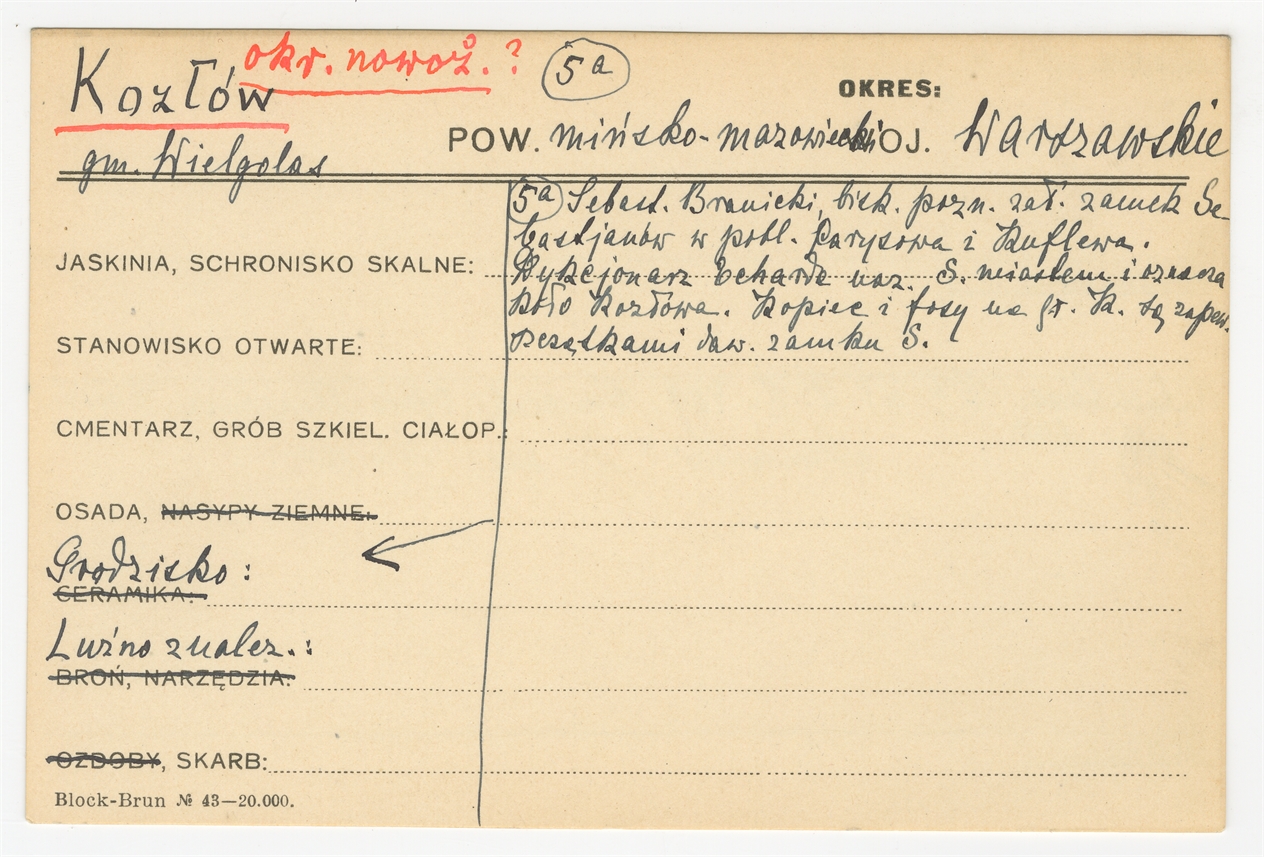 Kozłów okr. nowoż. ? 5a
OKRES:
POW. mińsko-mazowiecki WOJ. Warszawskie
gm. Wielgolas
5a Sebast. Branicki, bisk. pozn. zał. zamek Se-
bastjanów w pobl. Parysowa i Kuflewa.
Dykcjonarz Echarda naz. S. miastem i oznacza
koło Kozłowa. Kopiec i fosy na gr. K. są zapew.
szczątkami daw. zamku S.
JASKINIA, SCHRONISKO SKALNE:
STANOWISKO OTWARTE:
CMENTARZ, GRÓB SZKIEL. CIAŁOP.:
OSADA, NASYPY ZIEMNE:
Grodzisko:
CERAMIKA:
Luźno znalez.:
BROŃ, NARZĘDZIA:
OZDOBY, SKARB:
Block-Brun № 43—20.000.